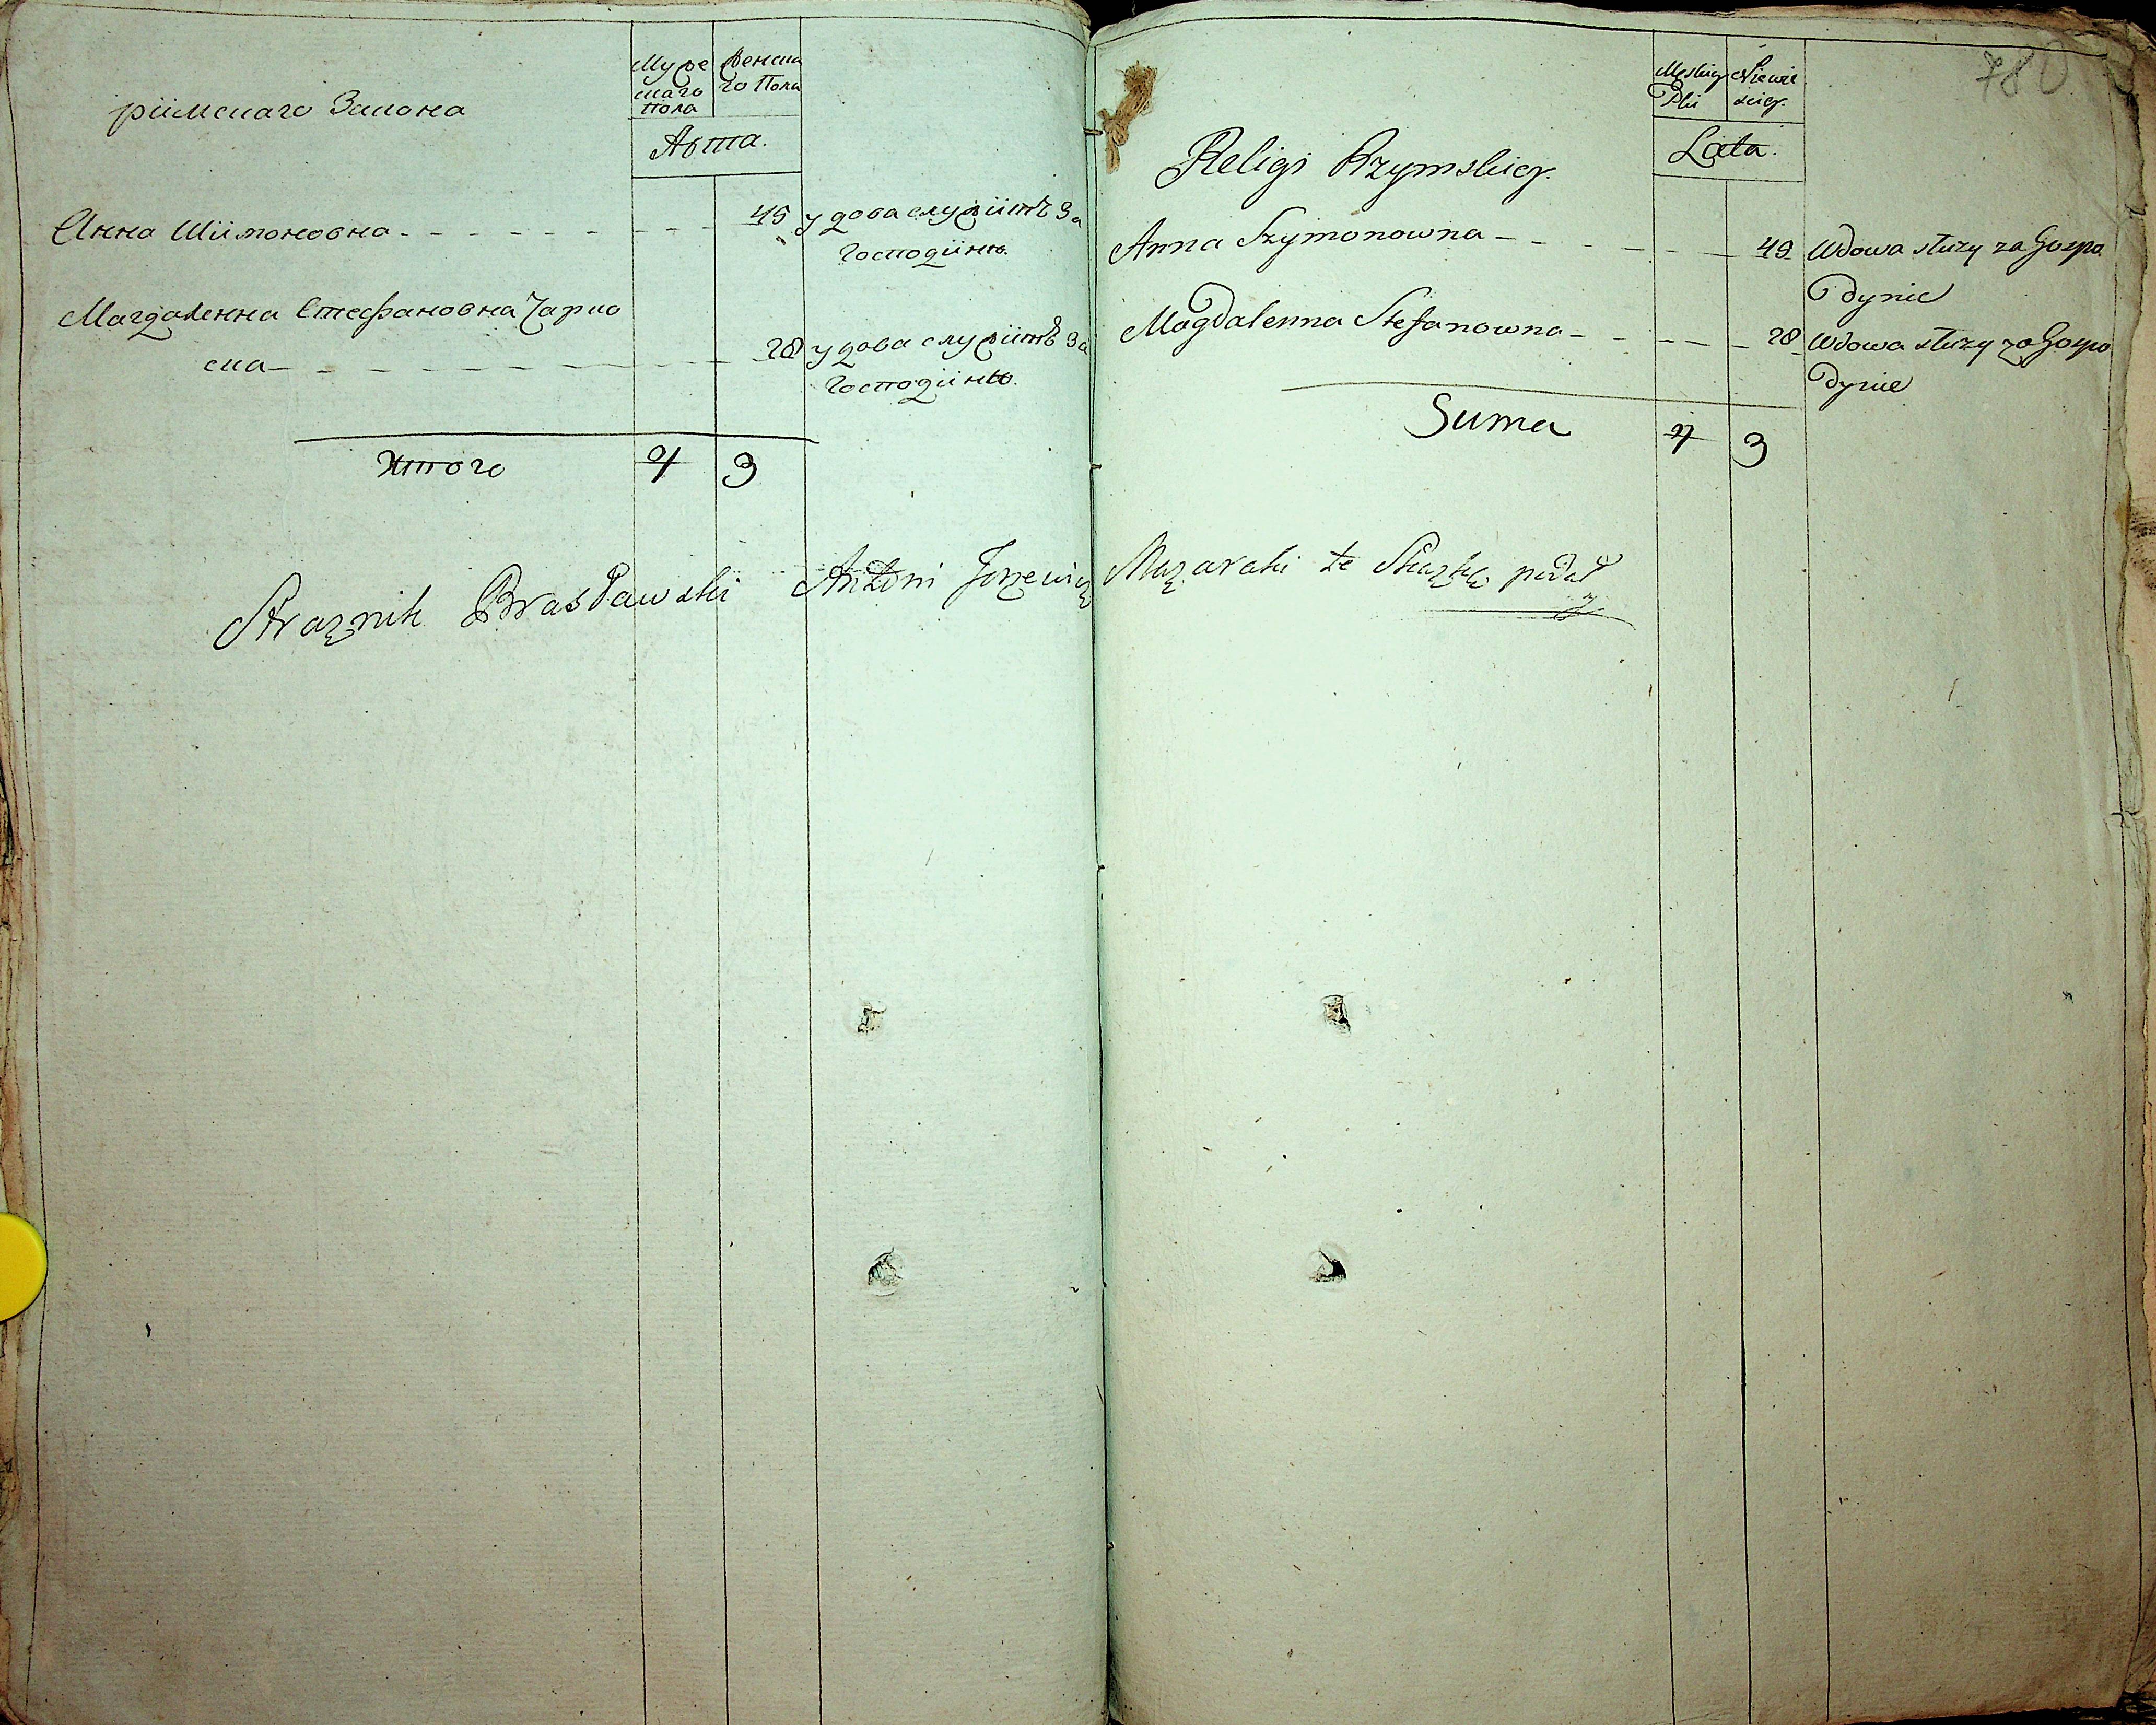 римскаго Закона
Мужескаго пола
Женскаго Пола
Лѣта.
Анна Шимоновна
45
удова служитъ за
Господиню.
Магдаленна Стефановна Чарко
ска
28
удова служитъ за
Господиню.
Итого 4 3
780
Męskiey Płci
Niewieściey.
Lata.
Religi Rzymskiey.
Anna Szymonowna
49
Wdowa służy za Gospo
dynie
Magdalenna Stefanowna
28
Wdowa służy za Gospo
dynie
Suma 4 3
Straznik Brasławski Antoni Mozaraki te Skazkę podał